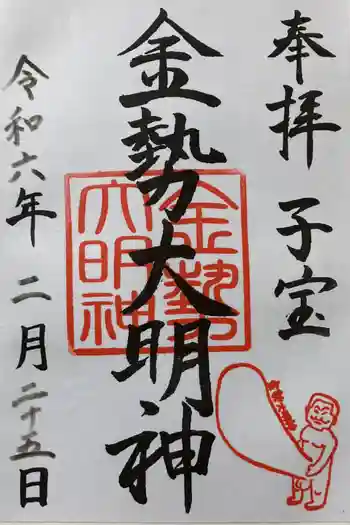 奉拝 子宝
金勢大明神
令和六年 二月 二十五日
金勢
大明神